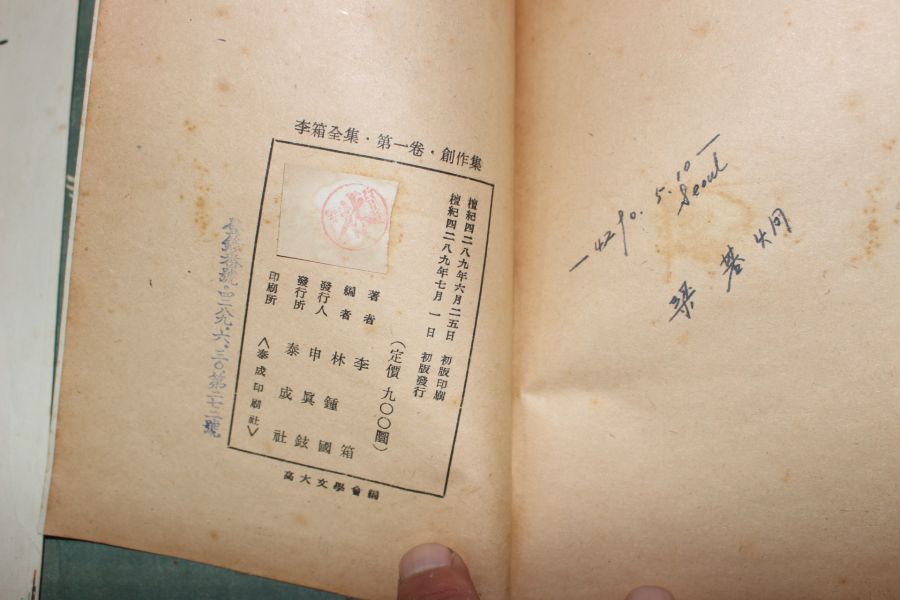 李箱全集・第一卷・創作集
檀紀四二八九年六月二五日 初版印刷
檀紀四二八九年七月 一日 初版發行
(定價 九〇〇圜)
著者 李箱
編者 林鍾國
發行人 申㒷鉉
發行所 泰成社
印刷所 <泰成印刷社>
高大文學會編
四二八九.六.三〇.第二十二號
—4290. 5. 10—
Seoul